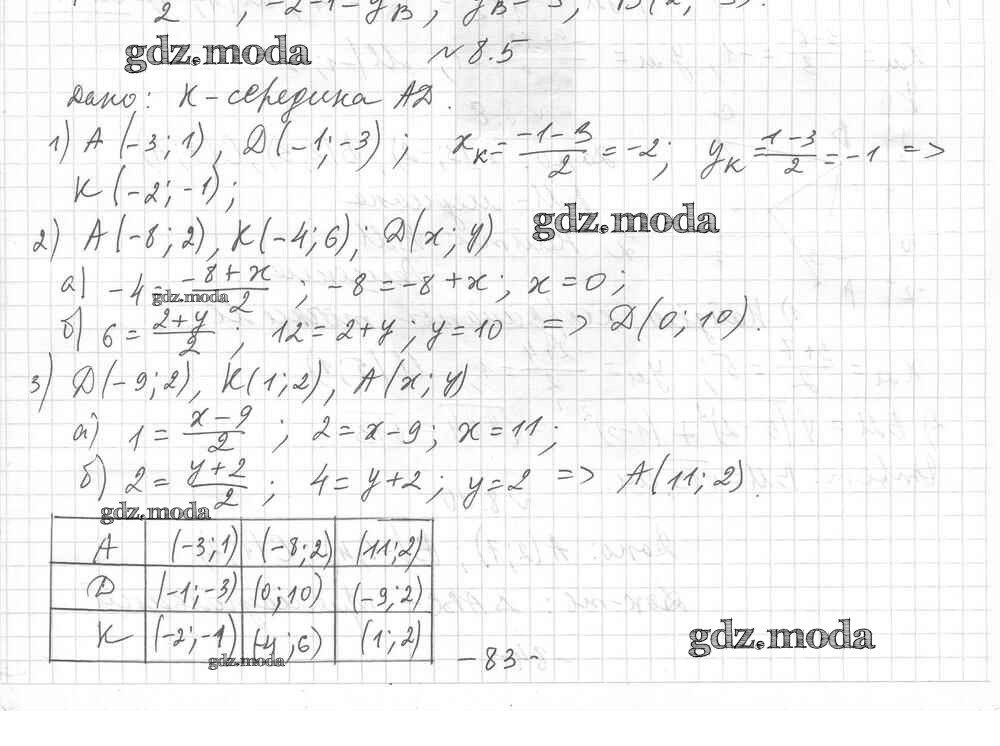 2 ; -2-1=y_B ; y_B=-3; B(2; -3).
gdz.moda
№ 8.5
Дано: K - середина AD.
1) A(-3; 1), D(-1; -3); x_K = (-1-3)/2 = -2; y_K = (1-3)/2 = -1 =>
K(-2; -1);
gdz.moda
2) A(-8; 2), K(-4; 6); D(x; y)
а) -4 = (-8+x)/2 ; -8 = -8+x; x=0;
gdz.moda
б) 6 = (2+y)/2 ; 12 = 2+y; y=10 => D(0; 10).
3) D(-9; 2), K(1; 2), A(x; y)
а) 1 = (x-9)/2 ; 2 = x-9; x=11;
б) 2 = (y+2)/2 ; 4 = y+2; y=2 => A(11; 2).
gdz.moda
A (-3; 1) (-8; 2) (11; 2)
D (-1; -3) (0; 10) (-9; 2)
K (-2; -1) (-4; 6) (1; 2)
gdz.moda
gdz.moda
-83-